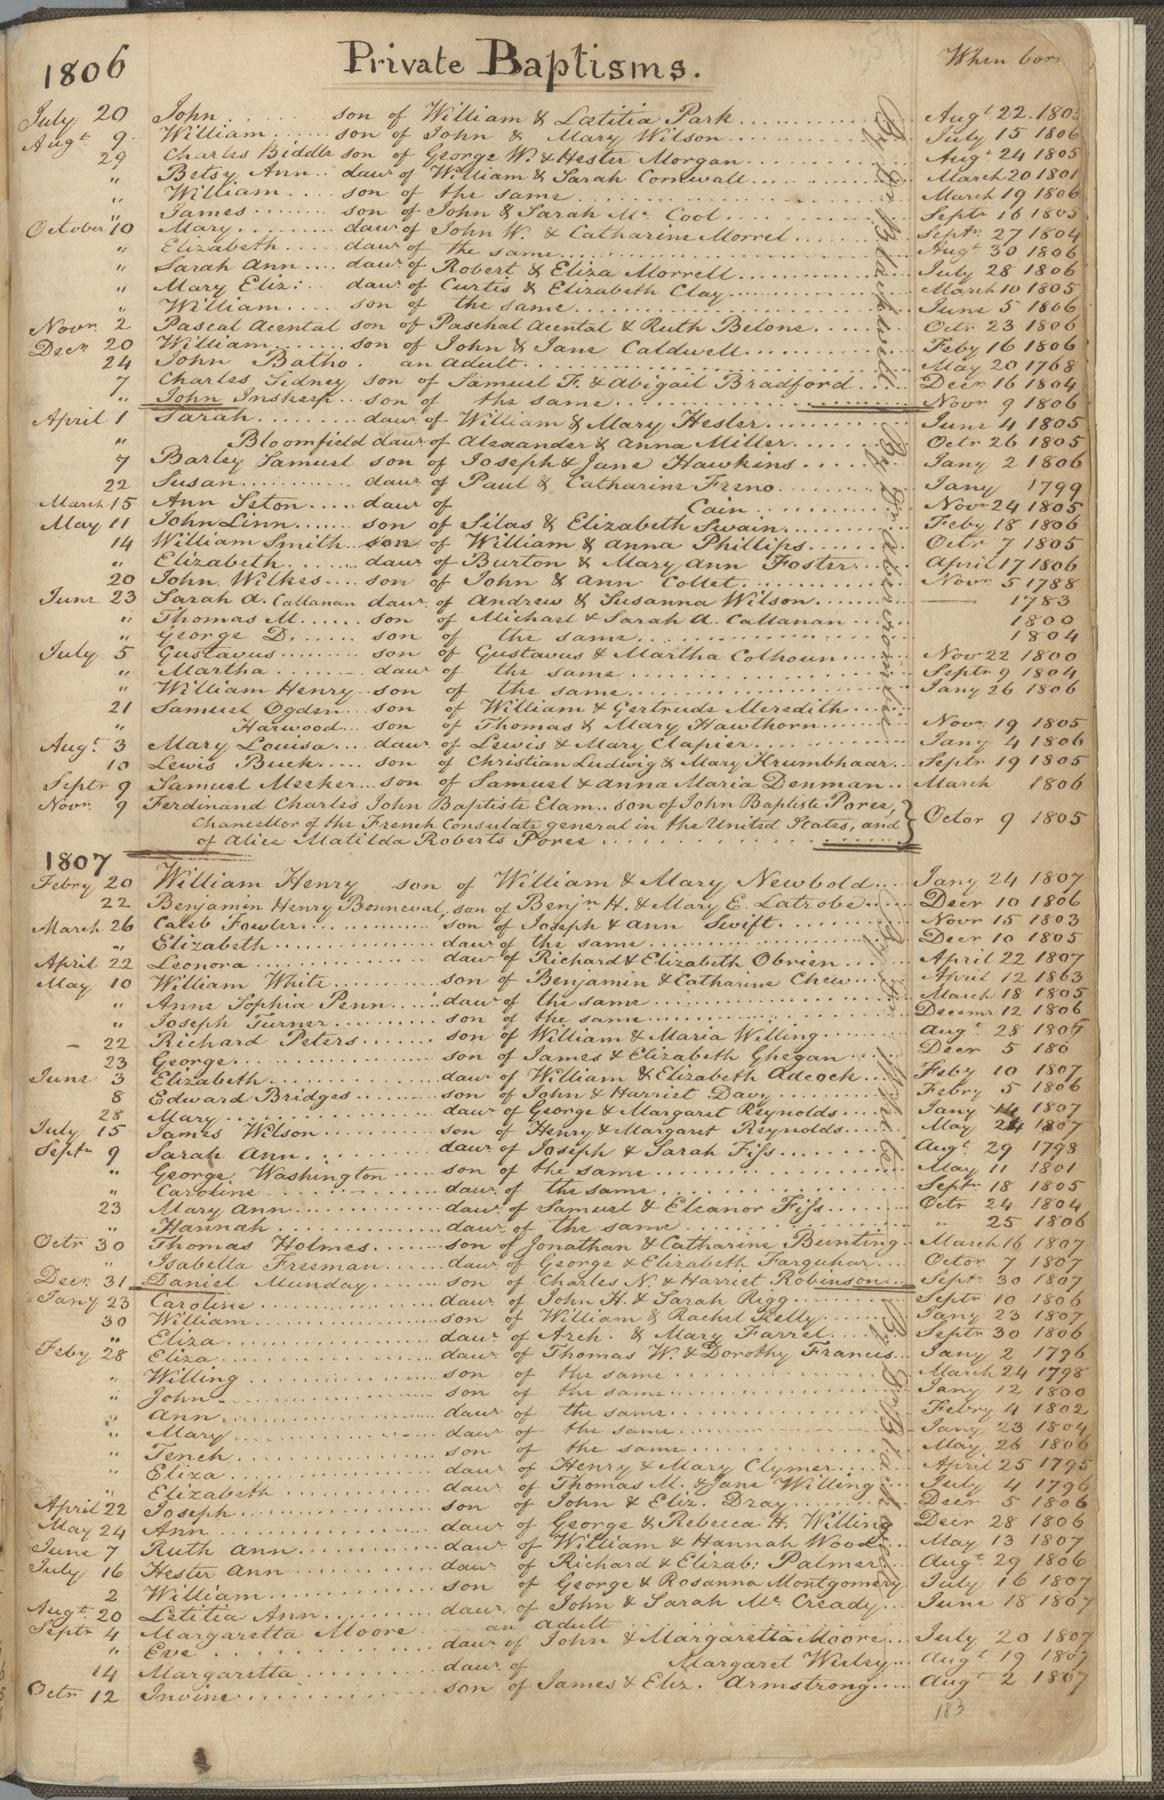 1806 Private Baptisms. When born
July 20 John son of William & Lætitia Park Augt 22. 180
Augt 9 William son of John & Mary Wilson July 15 1806
29 Charles Biddle son of George W. & Hester Morgan Augt 24 1805
" Betsy Ann daur of William & Sarah Cornwall March 20 1801
" William son of the same March 19 1806
" James son of John & Sarah Mc Cool Septr 16 1805
October 10 Mary daur of John W. & Catharine Morrel Septr 27 1804
" Elizabeth daur of the same Augt 30 1806
" Sarah Ann daur of Robert & Eliza Morrell July 28 1806
" Mary Eliz: daur of Curtis & Elizabeth Clay March 10 1805
" William son of the same June 5 1806
Novr 2 Pascal Acental son of Paschal Acental & Ruth Belone Octr 23 1806
Decr 20 William son of John & Jane Caldwell Feby 16 1806
24 John Batho. an adult May 20 1768
7 Charles Sidney son of Samuel F. & Abigail Bradford Decr 16 1804
" John Inskeep son of the same Novr 9 1806
By Dr Blackwell
April 1 Sarah daur of William & Mary Hesler June 4 1805
" Bloomfield daur of Alexander & Anna Miller Octr 26 1805
7 Barley Samuel son of Joseph & Jane Hawkins Jany 2 1806
22 Susan daur of Paul & Catharine Freno Jany 1799
March 15 Ann Seton daur of Cain Novr 24 1805
May 11 John Linn son of Silas & Elizabeth Swain Feby 18 1806
14 William Smith son of William & Anna Phillips Octr 7 1805
" Elizabeth daur of Burton & Mary Ann Foster April 17 1806
20 John Wilkes son of John & Ann Collet Novr 5 1788
June 23 Sarah A. Callanan daur of Andrew & Susanna Wilson 1783
" Thomas M. son of Michael & Sarah A. Callanan 1800
" George D. son of the same 1804
July 5 Gustavus son of Gustavus & Martha Colhoun Novr 22 1800
" Martha daur of the same Septr 9 1804
" William Henry son of the same Jany 26 1806
21 Samuel Ogden son of William & Gertrude Meredith
" Harwood son of Thomas & Mary Hawthorn Novr 19 1805
Augt 3 Mary Louisa daur of Lewis & Mary Clapier Jany 4 1806
10 Lewis Buck son of Christian Ludwig & Mary Krumbhaar Septr 19 1805
Septr 9 Samuel Meeker son of Samuel & Anna Maria Denman March 1806
Novr 9 Ferdinand Charles John Baptiste Elam son of John Baptiste Pores,
Chancellor of the French Consulate general in the United States, and Octor 9 1805
of Alice Matilda Roberts Pores
By Dr Abercrombie
1807
Febry 20 William Henry son of William & Mary Newbold Jany 24 1807
22 Benjamin Henry Bonneval, son of Benjn H. & Mary E. Latrobe Decr 10 1806
March 26 Caleb Fowler son of Joseph & Ann Swift Novr 15 1803
" Elizabeth daur of the same Decr 10 1805
April 22 Leonora daur of Richard & Elizabeth Obrien April 22 1807
May 10 William White son of Benjamin & Catharine Chew April 12 1863
" Anne Sophia Penn daur of the same March 18 1805
" Joseph Turner son of the same Decemr 12 1806
- 22 Richard Peters son of William & Maria Willing Augt 28 1805
23 George son of James & Elizabeth Ghegan Decr 5 180
June 3 Elizabeth daur of William & Elizabeth Adcock Feby 10 1807
8 Edward Bridges son of John & Harriet Davy Febry 5 1806
28 Mary daur of George & Margaret Reynolds Jany 14 1807
July 15 James Wilson son of Henry & Margaret Reynolds May 24 1807
Septr 9 Sarah Ann daur of Joseph & Sarah Fiss Augt 29 1798
" George Washington son of the same May 11 1801
" Caroline daur of the same Septr 18 1805
23 Mary Ann daur of Samuel & Eleanor Fiss Octr 24 1804
" Hannah daur of the same " 25 1806
Octr 30 Thomas Holmes son of Jonathan & Catharine Bunting March 16 1807
" Isabella Freeman daur of George & Elizabeth Farquhar Octor 7 1807
Decr 31 Daniel Munday son of Charles N. & Harriet Robinson Septr 30 1807
By Dr White
Jany 23 Caroline daur of John H. & Sarah Rigg Septr 10 1806
30 William son of William & Rachel Kelly Jany 23 1807
" Eliza daur of Arch. & Mary Farrel Septr 30 1806
Feby 28 Eliza daur of Thomas W. & Dorothy Francis Jany 2 1796
" Willing son of the same March 24 1798
" John son of the same Jany 12 1800
" Ann daur of the same Febry 4 1802
" Mary daur of the same Jany 23 1804
" Tench son of the same May 26 1806
" Eliza daur of Henry & Mary Clymer April 25 1795
" Elizabeth daur of Thomas M. & Jane Willing July 4 1796
April 22 Joseph son of John & Eliz. Dray Decr 5 1806
May 24 Ann daur of George & Rebecca H. Willing Decr 28 1806
June 7 Ruth Ann daur of William & Hannah Wood May 13 1807
July 16 Hester Ann daur of Richard & Elizab: Palmer Augt 29 1806
2 William son of George & Rosanna Montgomery July 16 1807
Augt 20 Lætitia Ann daur of John & Sarah Mc Cready June 18 1807
Septr 4 Margaretta Moore an adult
" Eve daur of John & Margaretta Moore July 20 1807
14 Margaretta daur of Margaret Weelry Augt 19 1807
Octr 12 Irvine son of James & Eliz. Armstrong Augt 2 1807
By Dr Blackwell
183